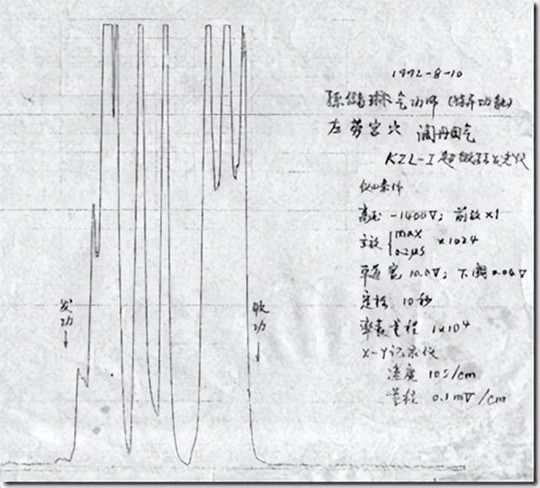 1992-8-10
孫储琳 气功师 (特异功能)
左劳宫穴 调丹田气
KZL-I 超微弱发光仪
条件
高压 -1400V; 前放 ×1
主放 max ×1024
0.2μS
道宽 10.0V; 下阈 0.04V
10秒
率表量程 1×10⁴
X-Y记录仪
速度 10S/cm
量程 0.1mV/cm
发功
↓
收功
↓